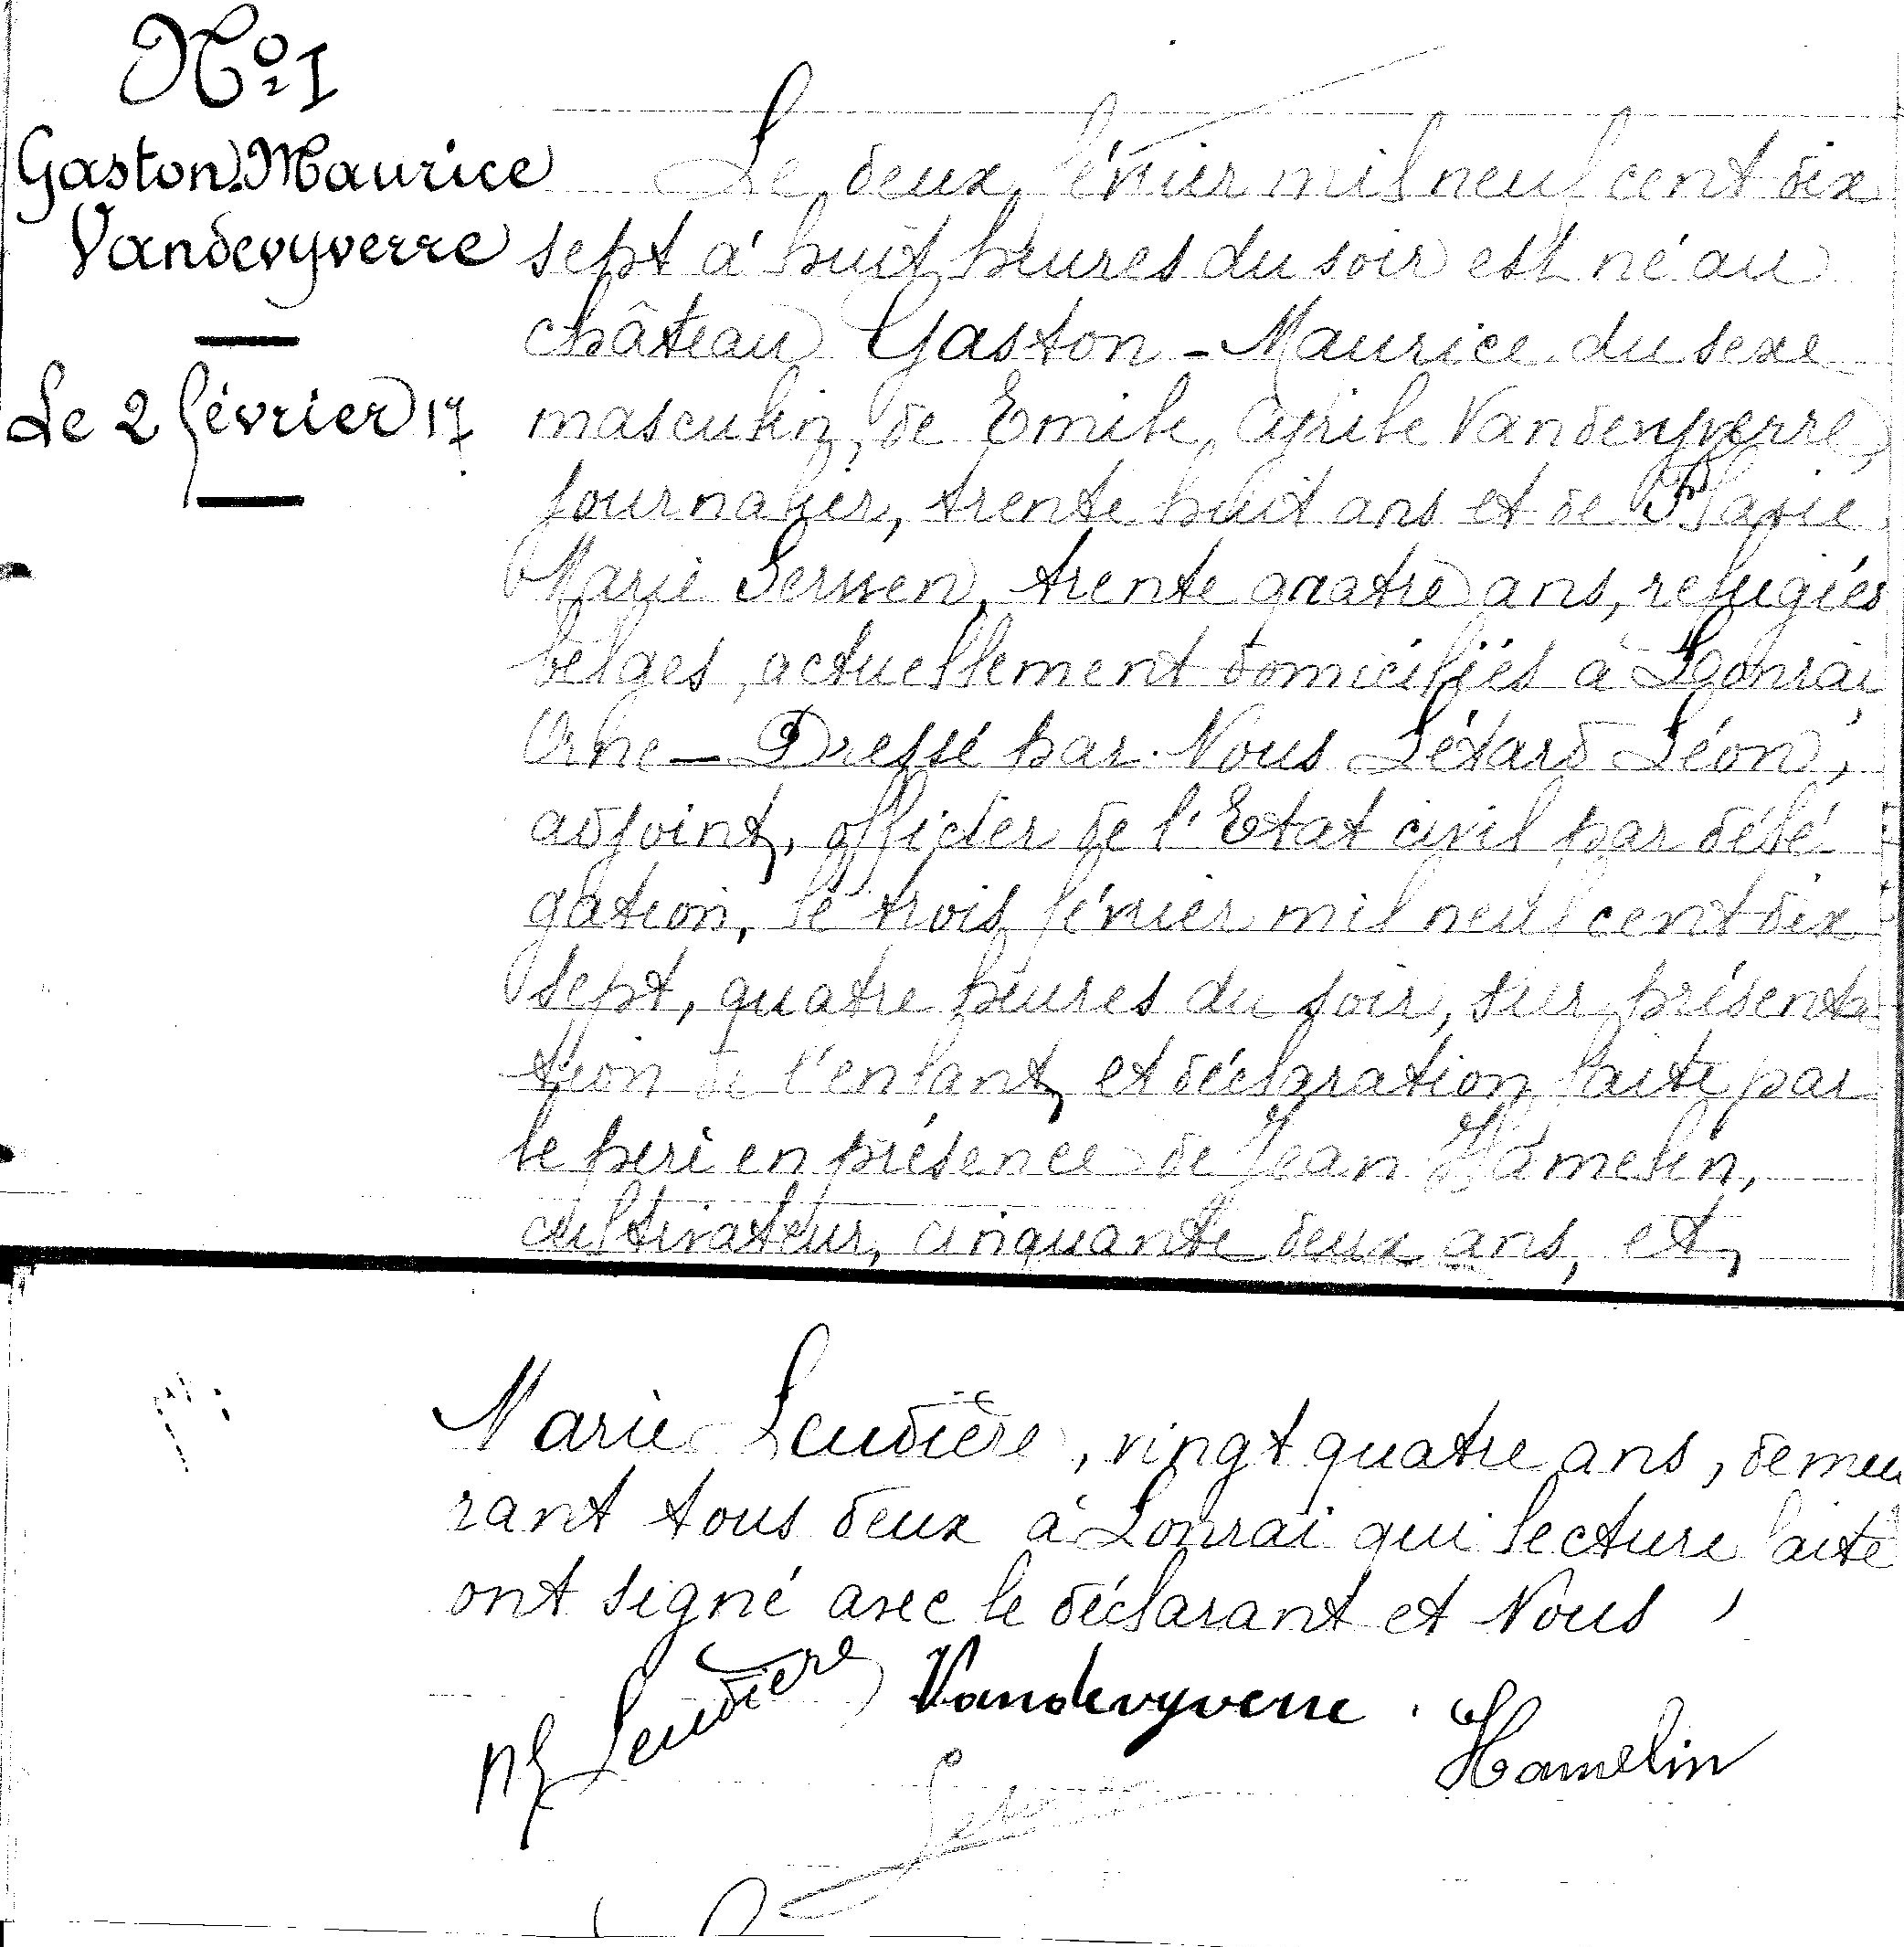 Nº 1
Gaston-Maurice
Vandevyverre
Le 2 février 17
Le deux février mil neuf cent dix
sept à huit heures du soir est né au
château Gaston - Maurice du sexe
masculin, de Emile, Cyrile Vandevyverre,
journalier, trente huit ans et de Marie
Marie trente quatre ans, refugiés
belges, actuellement domiciliés à Lonrai
Orne - Dressé par Nous Létard Léon,
adjoint, officier de l'Etat civil par délé
gation, le trois février mil neuf cent dix
sept, quatre heures du soir, sur présenta
tion de l'enfant et déclaration faite par
le père en présence de Jean Hamelin,
cultivateur, cinquante deux ans, et
Marie Leudière, vingt quatre ans, demeu
rant tous deux à Lonrai qui lecture faite
ont signé avec le déclarant et Nous
Leudière Vandevyverre. Hamelin